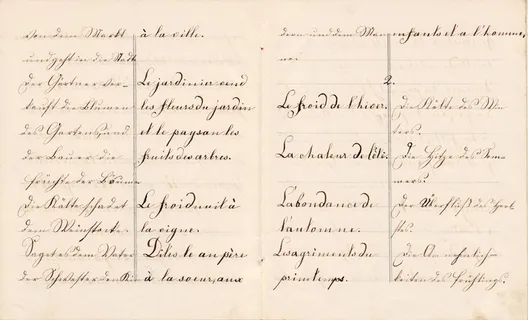 von dem Markt
und geht in die Stadt
der Gärtner ver-
kauft die Blumen
des Gartens, und
der Bauer die
früchte der Bäume
die Kälte schadet
dem Weinstocke.
Saget es dem Vater
der Schwester den Kin
à la ville.
Le jardinier vend
les fleurs du jardin
et le paysan les
fruits des arbres.
Le froid nuit à
la vigne.
Dites le au père
à la soeur, aux
dern und dem Man
ne.
enfants et a l'homme,
2.
Le froid de l'hiver.
La chaleur de l'été.
L'abondance de
l'automne.
Les agriments du
printemps.
die Kälte des Win
ters.
die Hitze des Som
mers.
der Überfluß des Herb
stes.
die Annehmlich-
keiten des Frühlings.